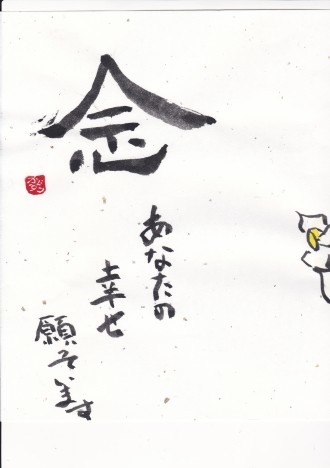 念
あなたの
幸せ
願っています